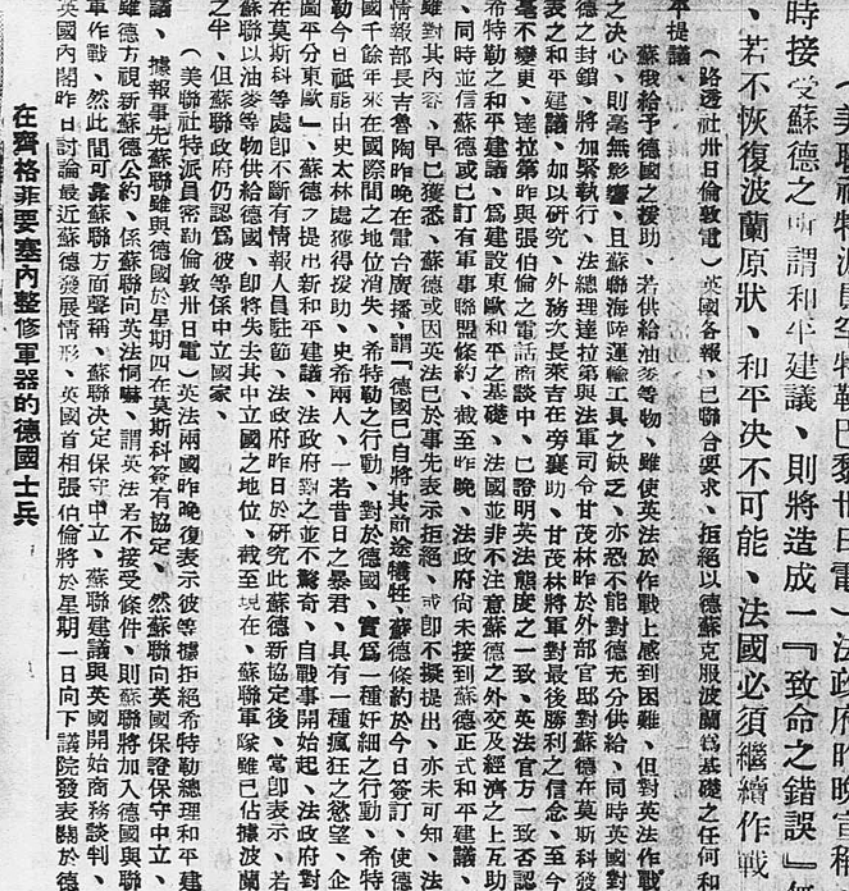 （美聯社特派員空特勒巴黎卅日電）法政府昨晚宣稱
時接受蘇德之所謂和平建議、則將造成一『致命之錯誤』
、若不恢復波蘭原狀、和平決不可能、法國必須繼續作戰
（路透社卅日倫敦電）英國各報、已聯合要求、拒絕以德蘇克服波蘭爲基礎之任何和
平提議、
蘇俄給予德國之援助、若供給油麥等物、雖使英法於作戰上感到困難、但對英法作戰
之決心、則毫無影響、且蘇聯海陸運輸工具之缺乏、亦恐不能對德充分供給、同時英國對
德之封鎖、將加緊執行、法總理達拉第與法軍司令甘茂林昨於外部官邸對蘇德在莫斯科發
表之和平建議、加以研究、外務次長萊吉在旁襄助、甘茂林將軍對最後勝利之信念、至今
毫不變更、達拉第昨與張伯倫之電話商談中、已證明英法態度之一致、英法官方一致否認
希特勒之和平建議、爲建設東歐和平之基礎、法國並非不注意蘇德之外交及經濟之上互助
、同時並信蘇德或已訂有軍事聯盟條約、截至昨晚、法政府尙未接到蘇德正式和平建議、
雖對其內容、早已獲悉、蘇德或因英法已於事先表示拒絕、或卽不擬提出、亦未可知、法
情報部長吉魯陶昨晚在電台廣播、謂『德國已自將其前途犧牲、蘇德條約於今日簽訂、使德
國千餘年來在國際間之地位消失、希特勒之行動、對於德國、實爲一種奸細之行動、希特
勒今日祗能由史太林處獲得援助、史希兩人、一若昔日之暴君、具有一種瘋狂之慾望、企
圖平分東歐』、蘇德之提出新和平建議、法政府對之並不驚奇、自戰事開始起、法政府對
在莫斯科等處卽不斷有情報人員駐節、法政府昨日於研究此蘇德新協定後、當卽表示、若
蘇聯以油麥等物供給德國、卽將失去其中立國之地位、截至現在、蘇聯軍隊雖已佔據波蘭
之半、但蘇聯政府仍認爲彼等係中立國家、
（美聯社特派員密勒倫敦卅日電）英法兩國昨晚復表示彼等據拒絕希特勒總理和平建
議、據報事先蘇聯雖與德國於星期四在莫斯科簽有協定、然蘇聯向英國保證保守中立、
雖德方視新蘇德公約、係蘇聯向英法恫嚇、謂英法若不接受條件、則蘇聯將加入德國與聯
軍作戰、然此間可靠蘇聯方面聲稱、蘇聯決定保守中立、蘇聯建議與英國開始商務談判、
英國內閣昨日討論最近蘇德發展情形、英國首相張伯倫將於星期一日向下議院發表關於德
在齊格菲要塞內整修軍器的德國士兵